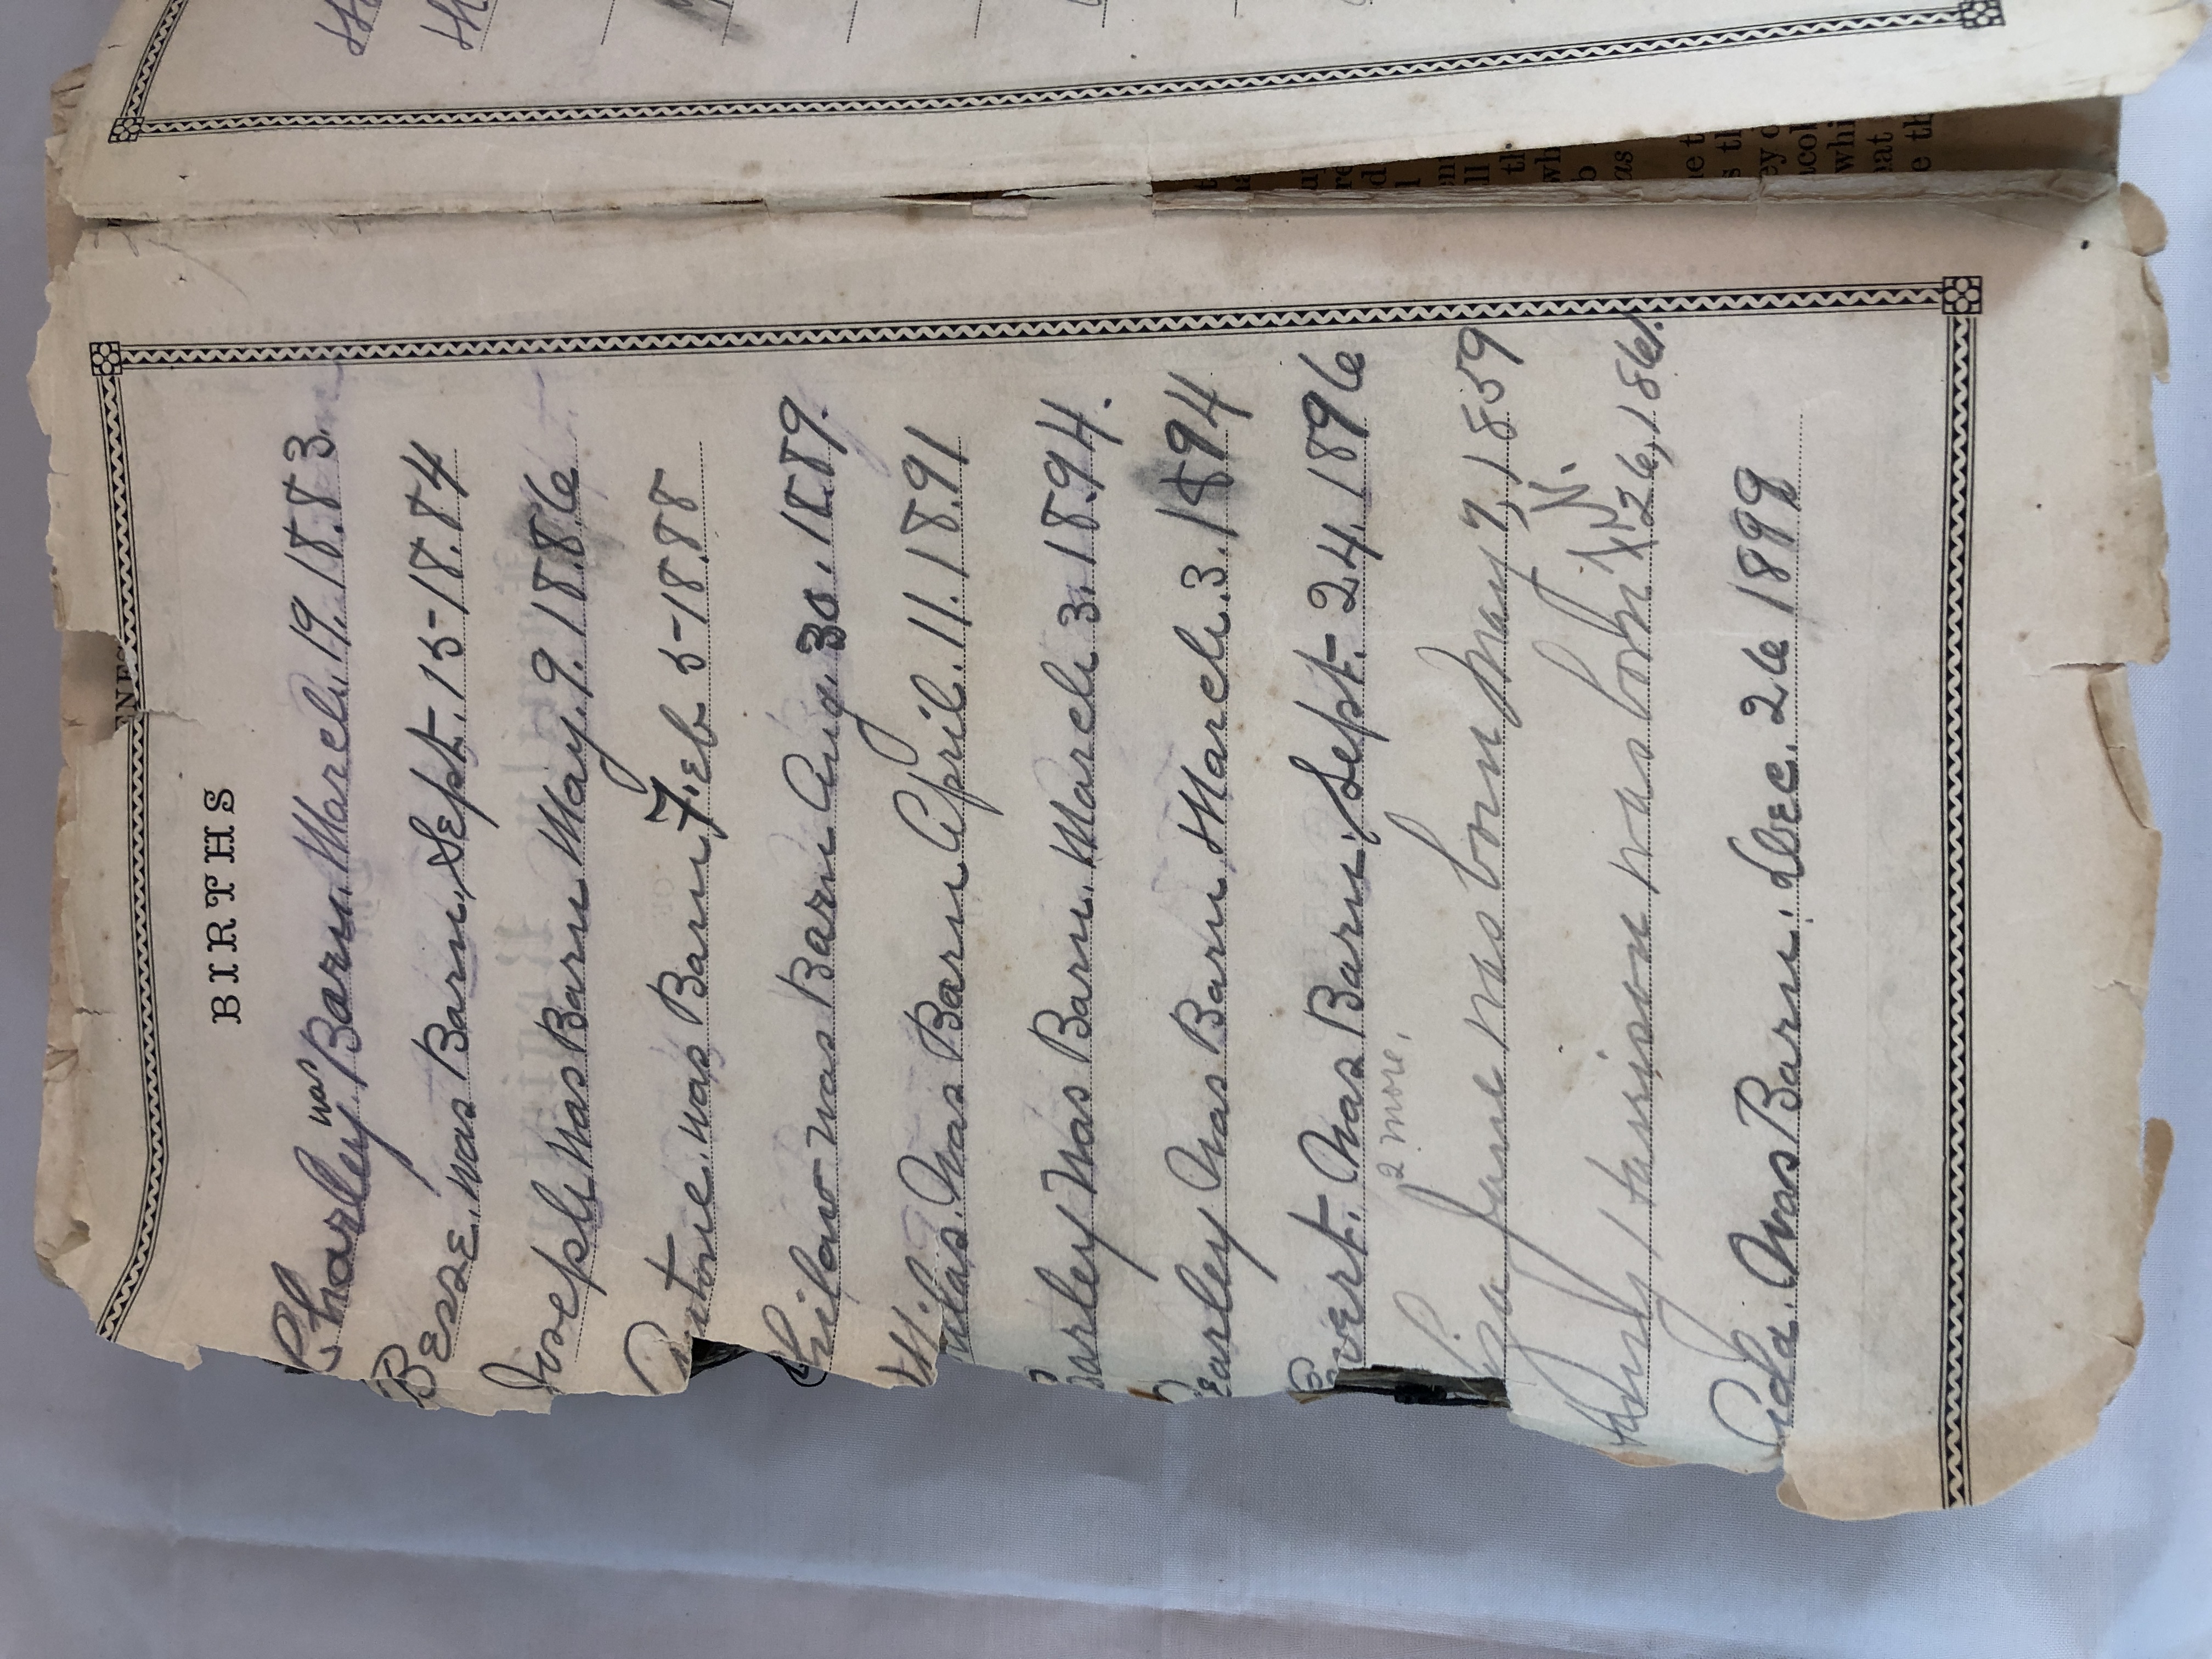 BIRTHS
Charley was Barn. March. 19. 18.83.
Besse. was Barn, Sept. 15-18.84
Joseph was Barn May. 9. 18.86
was Barn Feb 5-18.88
was Barn Aug. 30. 18.89.
was Barn April. 11. 18.91
Earley was Barn. March 3. 18.94.
Pearley was Barn March. 3. 1894
Evert. was Barn. Sept. 24. 1896
2 more,
Jane was born May 7, 1859
N.
Harrison was born 26, 1861.
Ada. was Barn. Dec. 26 1899